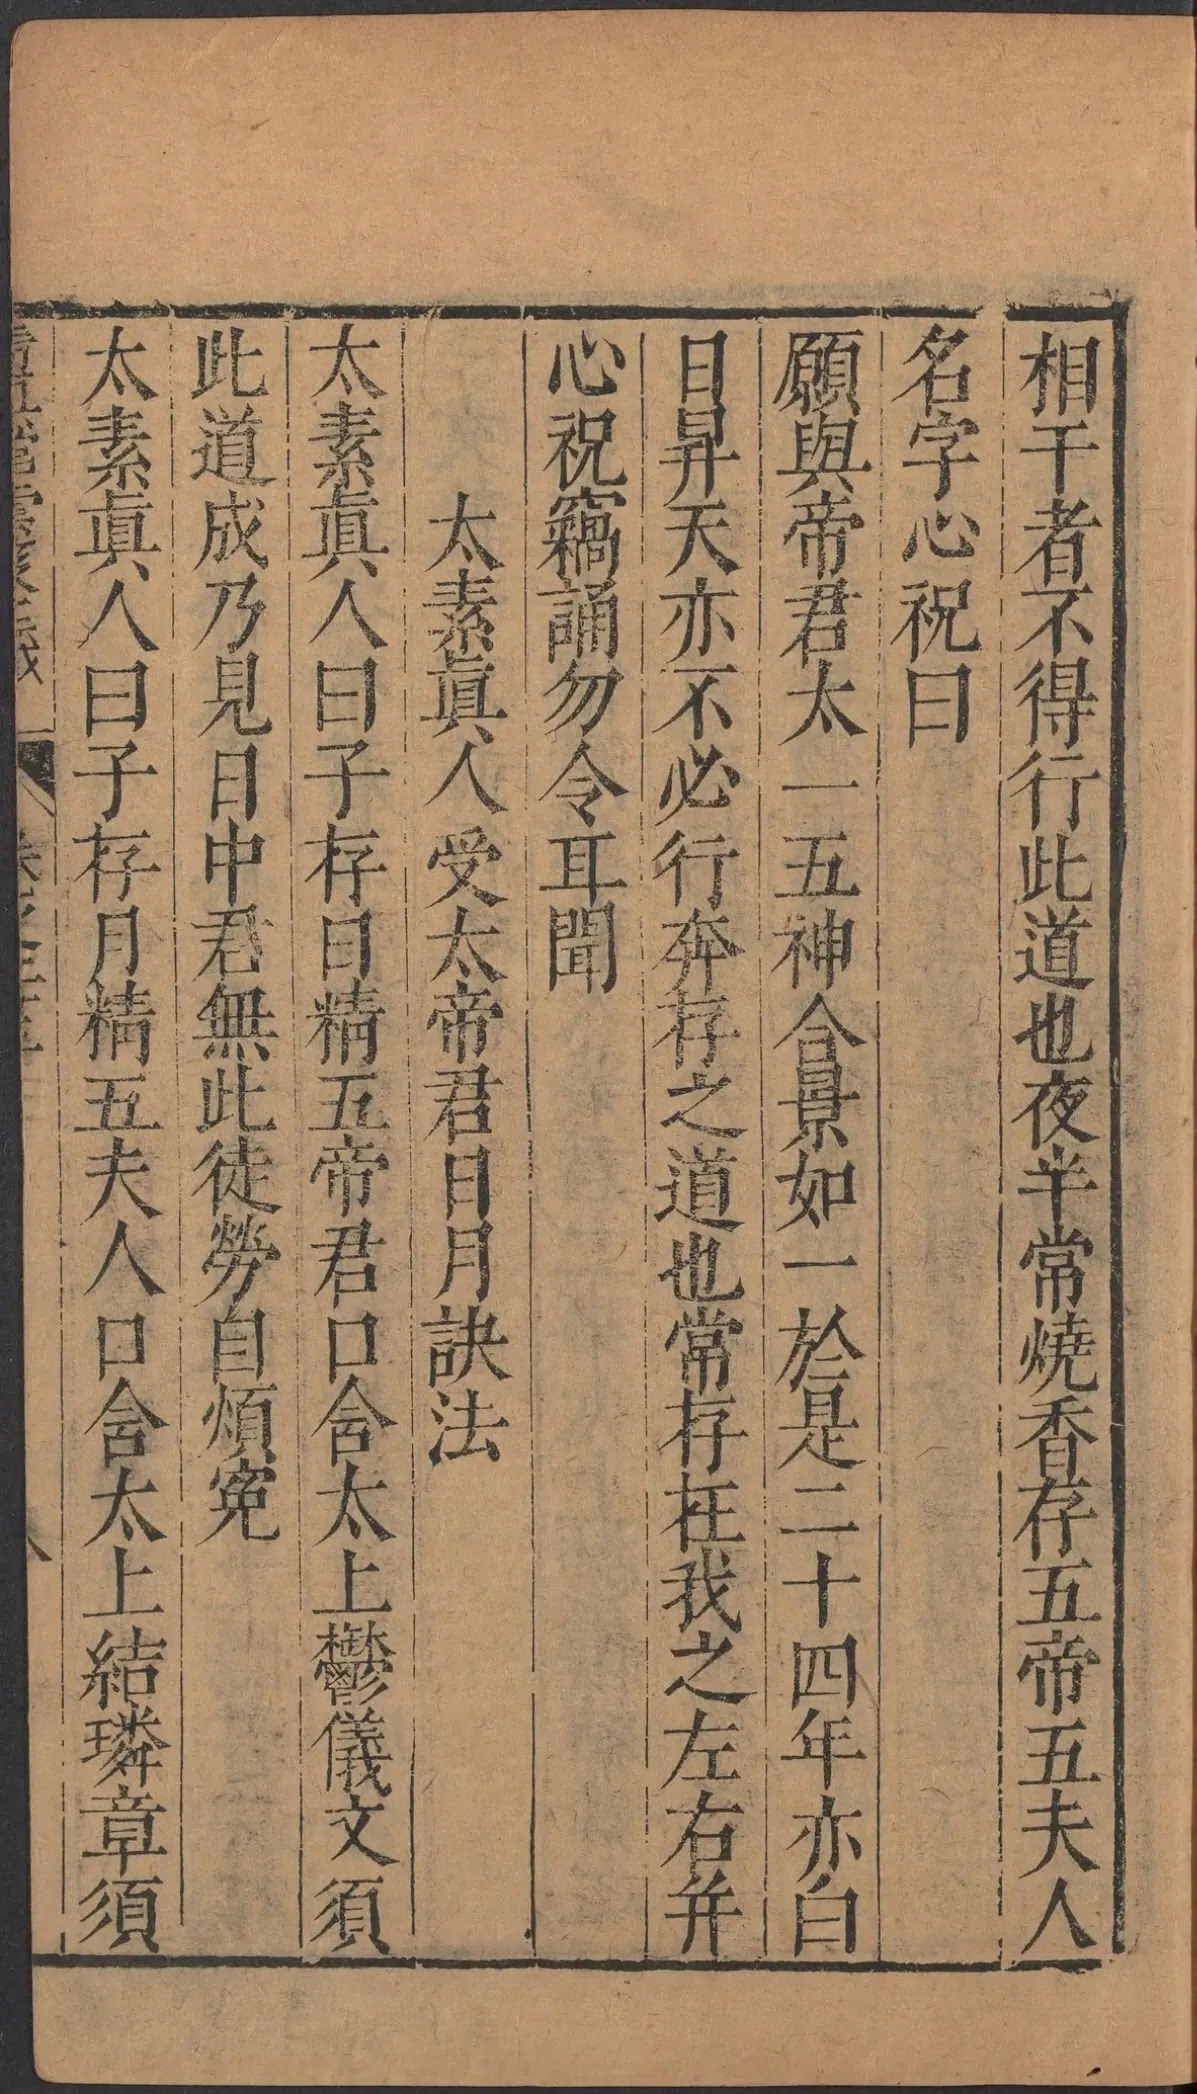 相干者不得行此道也夜半常燒香存五帝五夫人
名字心祝曰
願與帝君太一五神合景如一於是二十四年亦白
日昇天亦不必行奔存之道也常存在我之左右并
心祝竊誦勿令耳聞
太素眞人受太帝君日月訣法
太素眞人曰子存日精五帝君口含太上鬱儀文須
此道成乃見日中君無此徒勞自煩寃
太素眞人曰子存月精五夫人口含太上結璘章須